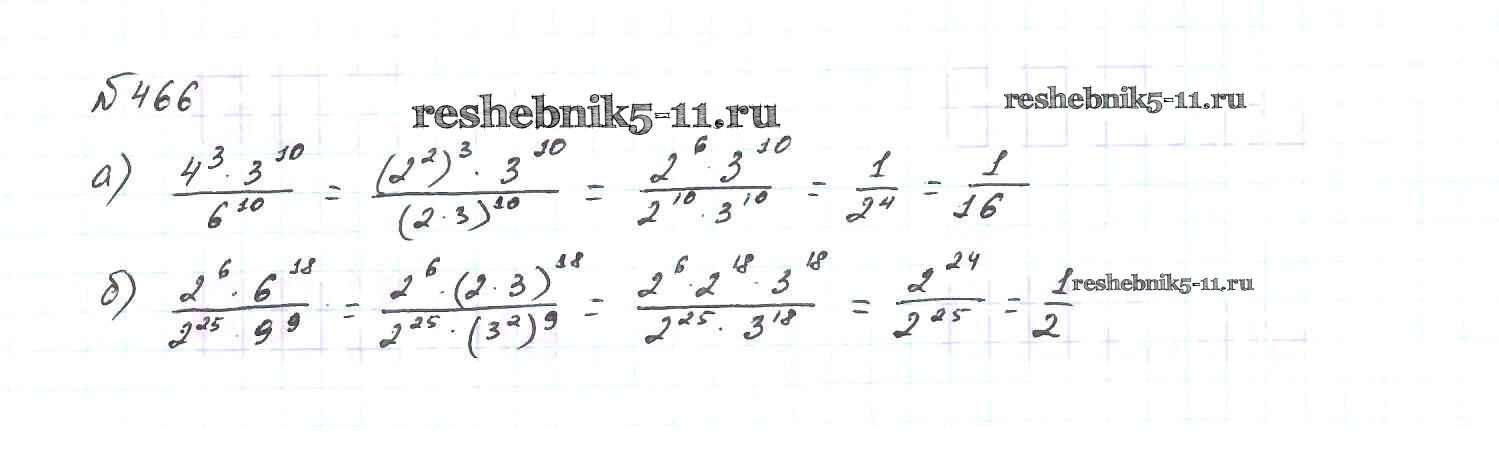 №466
reshebnik5-11.ru
reshebnik5-11.ru
а) \frac{4^3 · 3^{10}}{6^{10}} = \frac{(2^2)^3 · 3^{10}}{(2 · 3)^{10}} = \frac{2^6 · 3^{10}}{2^{10} · 3^{10}} = \frac{1}{2^4} = \frac{1}{16}
б) \frac{2^6 · 6^{18}}{2^{25} · 9^9} = \frac{2^6 · (2 · 3)^{18}}{2^{25} · (3^2)^9} = \frac{2^6 · 2^{18} · 3^{18}}{2^{25} · 3^{18}} = \frac{2^{24}}{2^{25}} = \frac{1}{2}
reshebnik5-11.ru